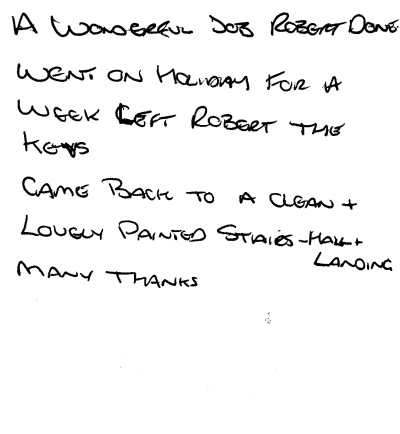 A WONDERFUL JOB ROBERT DONE
WENT ON HOLIDAY FOR A
WEEK LEFT ROBERT THE
KEYS
CAME BACK TO A CLEAN +
LOVELY PAINTED STAIRS - HALL +
LANDING
MANY THANKS